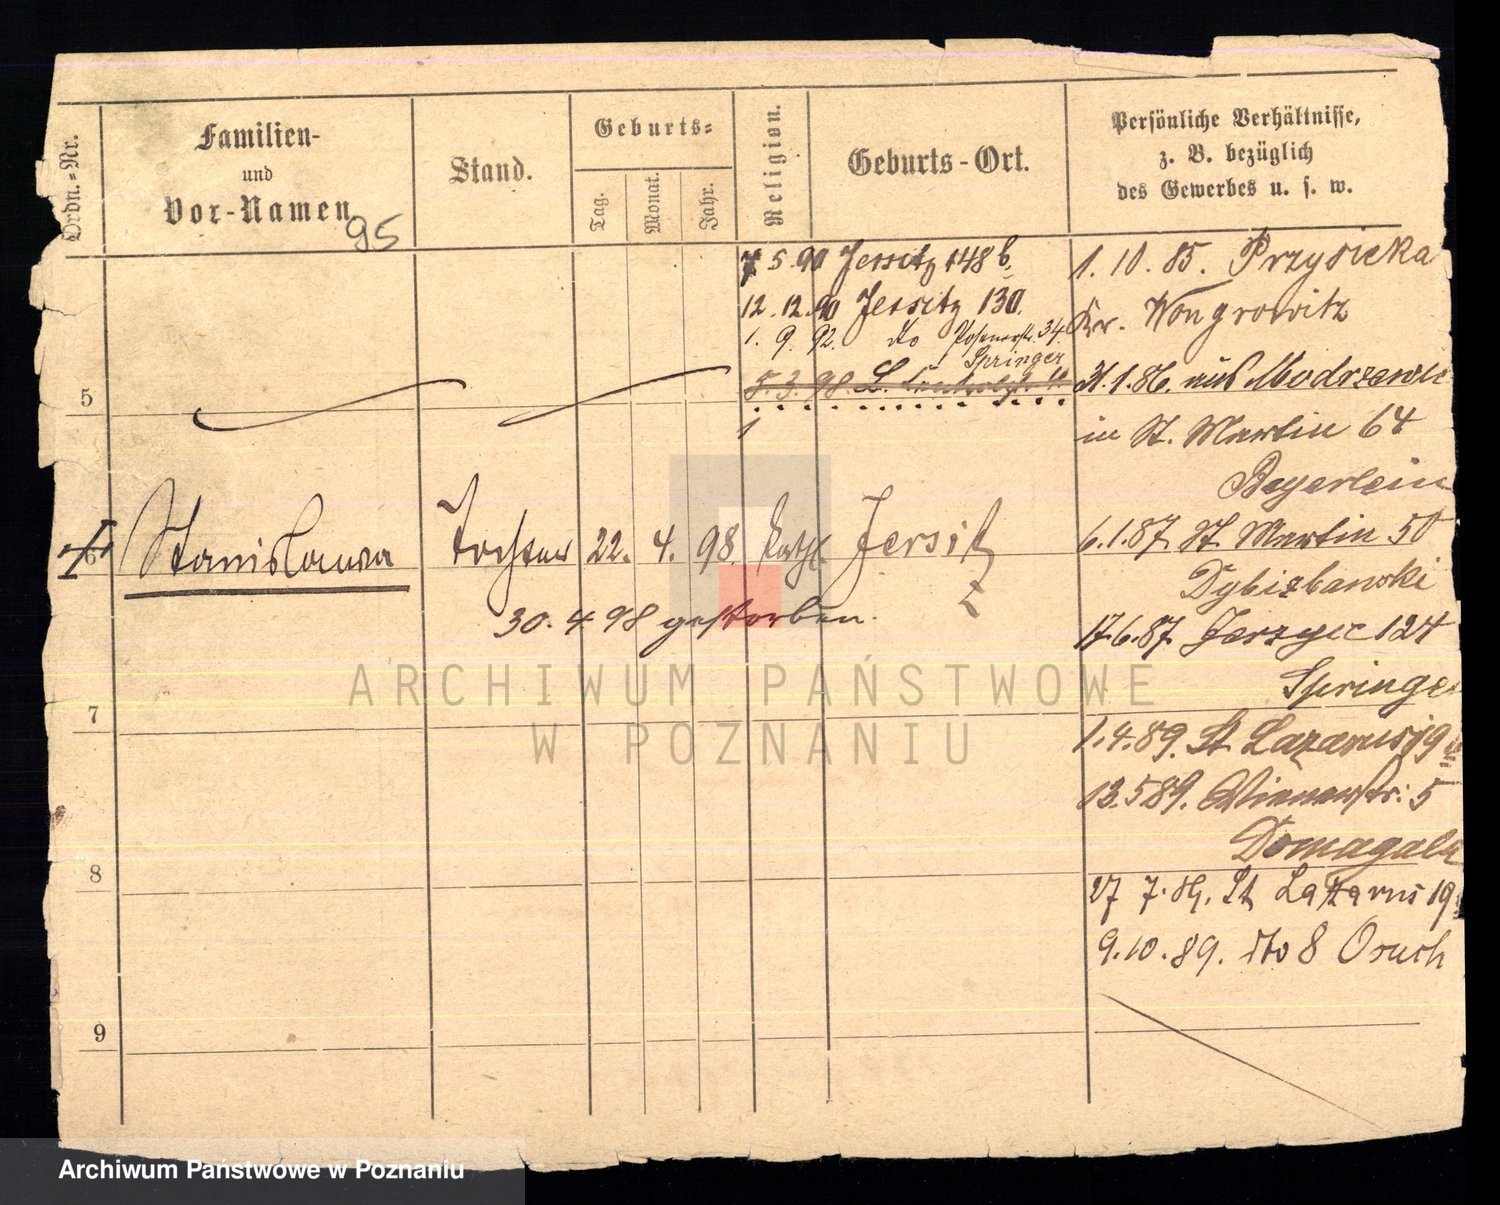 Ordn.-Nr.
Familien-
und
Vor-Namen
95
Stand.
Geburts-
Tag.
Monat.
Jahr.
Religion.
Geburts-Ort.
Persönliche Verhältnisse,
z. B. bezüglich
des Gewerbes u. s. w.
7 5. 90 Jersitz 148 b.
12. 12. 90 Jersitz 130.
1. 9. 92. dto Posenerstr. 34.
Springer
5. 3. 98.
5
6 Stanislawa Tochter 22. 4. 98. Kath. Jersitz
30. 4 98 gestorben.
7
8
9
1. 10. 85. Przysieka
Kr. Wongrowitz
31. 1. 86. aus Modrzewie
in St. Martin 64
Beyerlein
6. 1. 87. St. Martin 50
Dybizbanski
17. 6. 87. Jerzyce 124
Springer
1. 4. 89. St Lazarus 19
13. 5 89. Wienerstr. 5
Domagala
27 7. 89. St Lazarus 19
9. 10. 89. dto 8 Oruch
ARCHIWUM PAŃSTWOWE
W POZNANIU
Archiwum Państwowe w Poznaniu